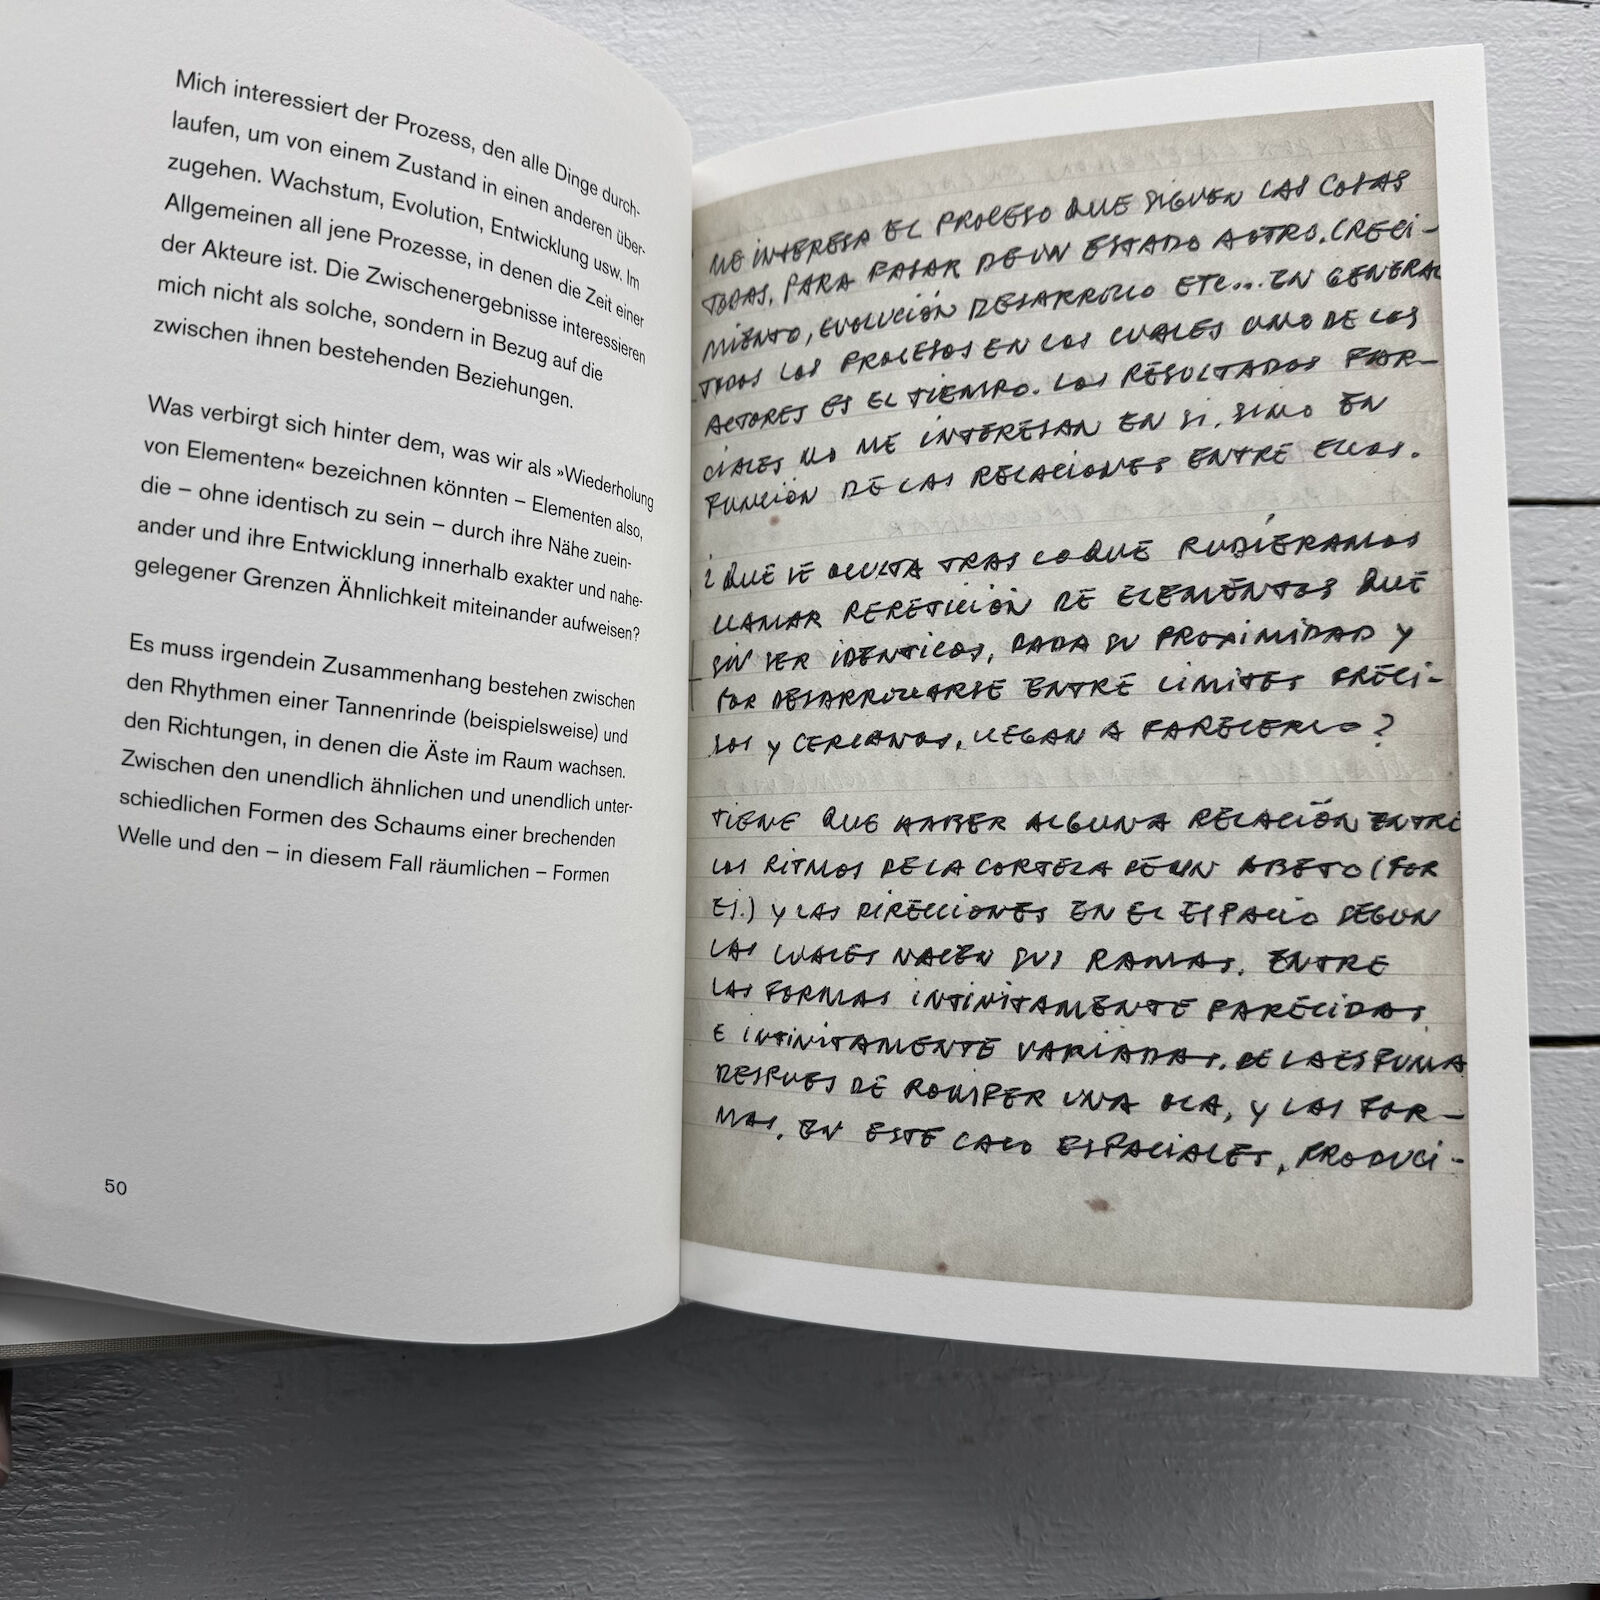 Mich interessiert der Prozess, den alle Dinge durch-
laufen, um von einem Zustand in einen anderen über-
zugehen. Wachstum, Evolution, Entwicklung usw. Im
Allgemeinen all jene Prozesse, in denen die Zeit einer
der Akteure ist. Die Zwischenergebnisse interessieren
mich nicht als solche, sondern in Bezug auf die
zwischen ihnen bestehenden Beziehungen.
Was verbirgt sich hinter dem, was wir als »Wiederholung
von Elementen« bezeichnen könnten – Elementen also,
die – ohne identisch zu sein – durch ihre Nähe zuein-
ander und ihre Entwicklung innerhalb exakter und nahe-
gelegener Grenzen Ähnlichkeit miteinander aufweisen?
Es muss irgendein Zusammenhang bestehen zwischen
den Rhythmen einer Tannenrinde (beispielsweise) und
den Richtungen, in denen die Äste im Raum wachsen.
Zwischen den unendlich ähnlichen und unendlich unter-
schiedlichen Formen des Schaums einer brechenden
Welle und den – in diesem Fall räumlichen – Formen
50
ME INTERESA EL PROCESO QUE SIGUEN LAS COSAS
TODAS, PARA PASAR DE UN ESTADO A OTRO. CRECI-
MIENTO, EVOLUCIÓN DESARROLLO ETC... EN GENERAL
TODOS LOS PROCESOS EN LOS CUALES UNO DE LOS
ACTORES ES EL TIEMPO. LOS RESULTADOS PAR-
CIALES NO ME INTERESAN EN SI, SINO EN
FUNCIÓN DE LAS RELACIONES ENTRE ELLOS.
¿QUE SE OCULTA TRAS LO QUE PUDIÉRAMOS
LLAMAR REPETICIÓN DE ELEMENTOS QUE
SIN SER IDENTICOS, DADA SU PROXIMIDAD Y
POR DESARROLLARSE ENTRE LIMITES PRECI-
SOS Y CERCANOS, LLEGAN A PARECERLO?
TIENE QUE HABER ALGUNA RELACIÓN ENTRE
LOS RITMOS DE LA CORTEZA DE UN ABETO (POR
EJ.) Y LAS DIRECCIONES EN EL ESPACIO SEGUN
LAS CUALES NACEN SUS RAMAS. ENTRE
LAS FORMAS INFINITAMENTE PARECIDAS
E INFINITAMENTE VARIADAS, DE LA ESPUMA
DESPUES DE ROMPER UNA OLA, Y LAS FOR-
MAS, EN ESTE CASO ESPACIALES, PRODUCI-